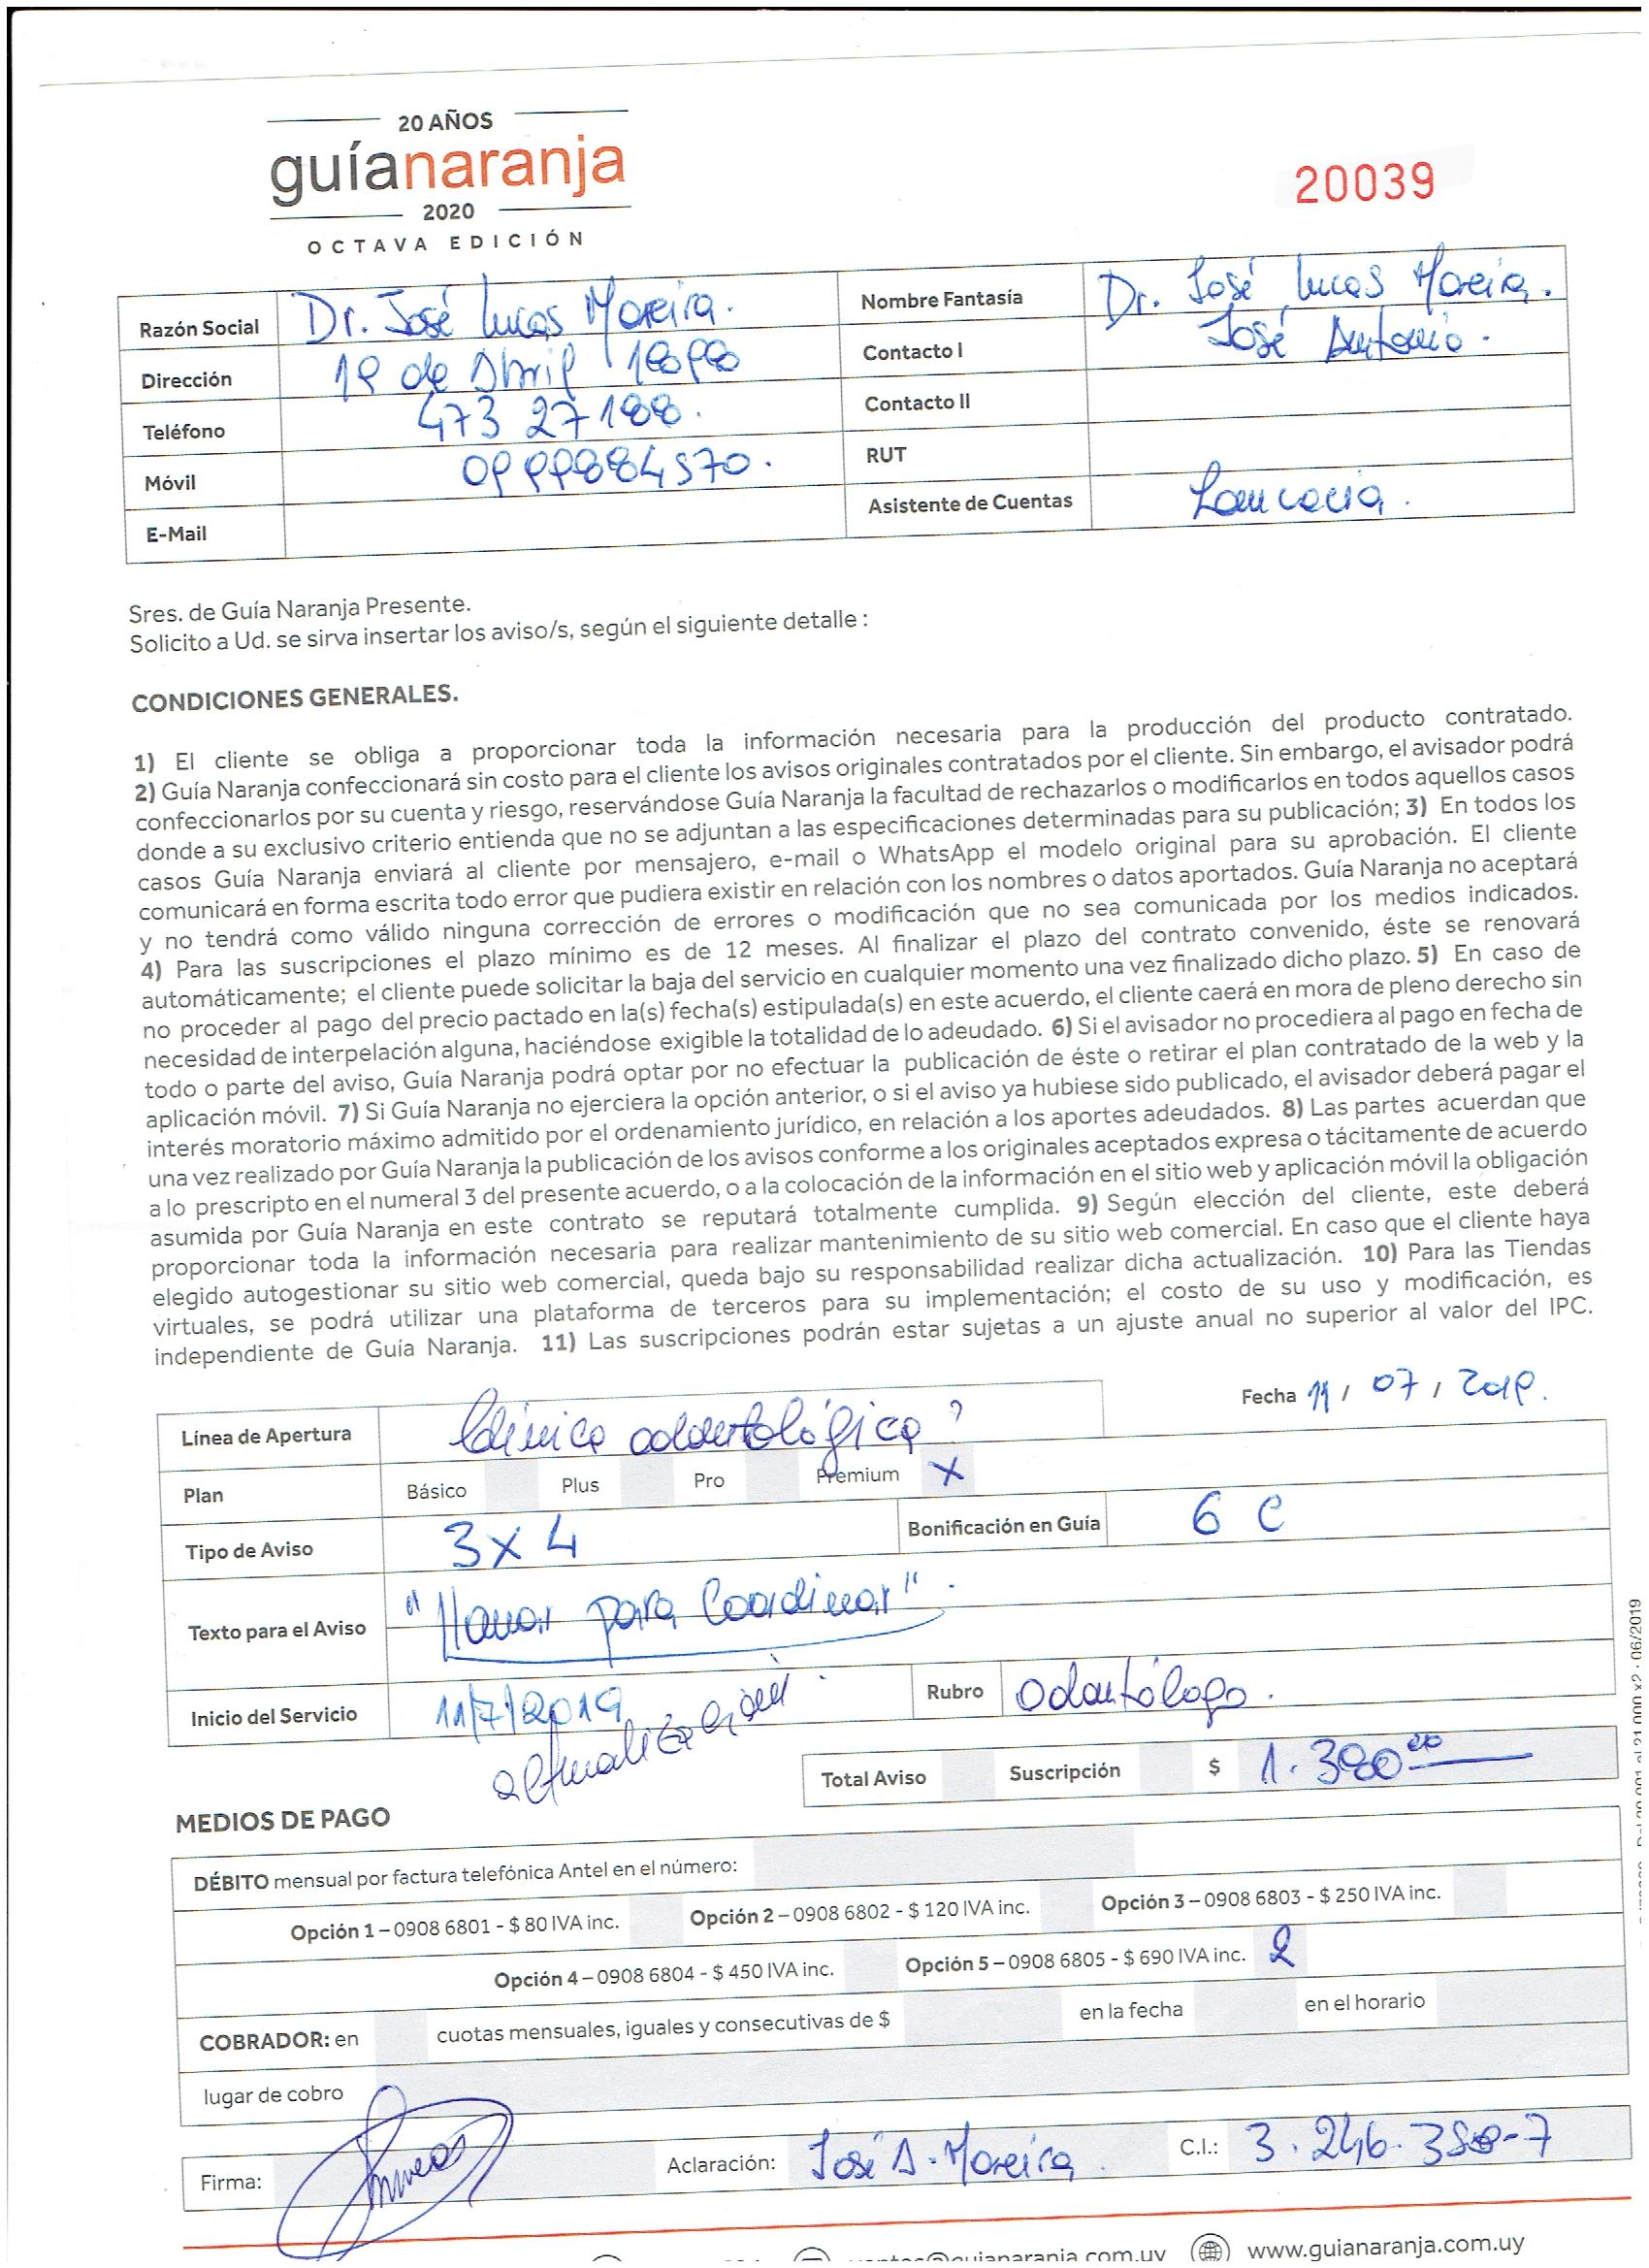 20 AÑOS
guíanaranja
2020
OCTAVA EDICIÓN
20039
Razón Social Dr. José Lucas Moreira.
Nombre Fantasía Dr. José Lucas Moreira.
Dirección 19 de Abril
Contacto I José Antonio.
Teléfono 473 27188.
Contacto II
Móvil
RUT
E-Mail
Asistente de Cuentas
Sres. de Guía Naranja Presente.
Solicito a Ud. se sirva insertar los aviso/s, según el siguiente detalle :
CONDICIONES GENERALES.
1) El cliente se obliga a proporcionar toda la información necesaria para la producción del producto contratado.
2) Guía Naranja confeccionará sin costo para el cliente los avisos originales contratados por el cliente. Sin embargo, el avisador podrá
confeccionarlos por su cuenta y riesgo, reservándose Guía Naranja la facultad de rechazarlos o modificarlos en todos aquellos casos
donde a su exclusivo criterio entienda que no se adjuntan a las especificaciones determinadas para su publicación; 3) En todos los
casos Guía Naranja enviará al cliente por mensajero, e-mail o WhatsApp el modelo original para su aprobación. El cliente
comunicará en forma escrita todo error que pudiera existir en relación con los nombres o datos aportados. Guía Naranja no aceptará
y no tendrá como válido ninguna corrección de errores o modificación que no sea comunicada por los medios indicados.
4) Para las suscripciones el plazo mínimo es de 12 meses. Al finalizar el plazo del contrato convenido, éste se renovará
automáticamente; el cliente puede solicitar la baja del servicio en cualquier momento una vez finalizado dicho plazo. 5) En caso de
no proceder al pago del precio pactado en la(s) fecha(s) estipulada(s) en este acuerdo, el cliente caerá en mora de pleno derecho sin
necesidad de interpelación alguna, haciéndose exigible la totalidad de lo adeudado. 6) Si el avisador no procediera al pago en fecha de
todo o parte del aviso, Guía Naranja podrá optar por no efectuar la publicación de éste o retirar el plan contratado de la web y la
aplicación móvil. 7) Si Guía Naranja no ejerciera la opción anterior, o si el aviso ya hubiese sido publicado, el avisador deberá pagar el
interés moratorio máximo admitido por el ordenamiento jurídico, en relación a los aportes adeudados. 8) Las partes acuerdan que
una vez realizado por Guía Naranja la publicación de los avisos conforme a los originales aceptados expresa o tácitamente de acuerdo
a lo prescripto en el numeral 3 del presente acuerdo, o a la colocación de la información en el sitio web y aplicación móvil la obligación
asumida por Guía Naranja en este contrato se reputará totalmente cumplida. 9) Según elección del cliente, este deberá
proporcionar toda la información necesaria para realizar mantenimiento de su sitio web comercial. En caso que el cliente haya
elegido autogestionar su sitio web comercial, queda bajo su responsabilidad realizar dicha actualización. 10) Para las Tiendas
virtuales, se podrá utilizar una plataforma de terceros para su implementación; el costo de su uso y modificación, es
independiente de Guía Naranja. 11) Las suscripciones podrán estar sujetas a un ajuste anual no superior al valor del IPC.
Fecha 11 / 07 / 2019.
Línea de Apertura Clínica odontológica
Plan Básico Plus Pro Premium X
Tipo de Aviso 3x4 Bonificación en Guía 6 C
Texto para el Aviso "Llamar para Coordinar".
Inicio del Servicio 11/7/2019 Rubro Odontólogo.
actualización.
Total Aviso Suscripción $ 1.380
MEDIOS DE PAGO
DÉBITO mensual por factura telefónica Antel en el número:
Opción 1 – 0908 6801 - $ 80 IVA inc. Opción 2 – 0908 6802 - $ 120 IVA inc. Opción 3 – 0908 6803 - $ 250 IVA inc.
Opción 4 – 0908 6804 - $ 450 IVA inc. Opción 5 – 0908 6805 - $ 690 IVA inc. 2
COBRADOR: en cuotas mensuales, iguales y consecutivas de $ en la fecha en el horario
lugar de cobro
Firma: Aclaración: José A. Moreira C.I.:
www.guianaranja.com.uy